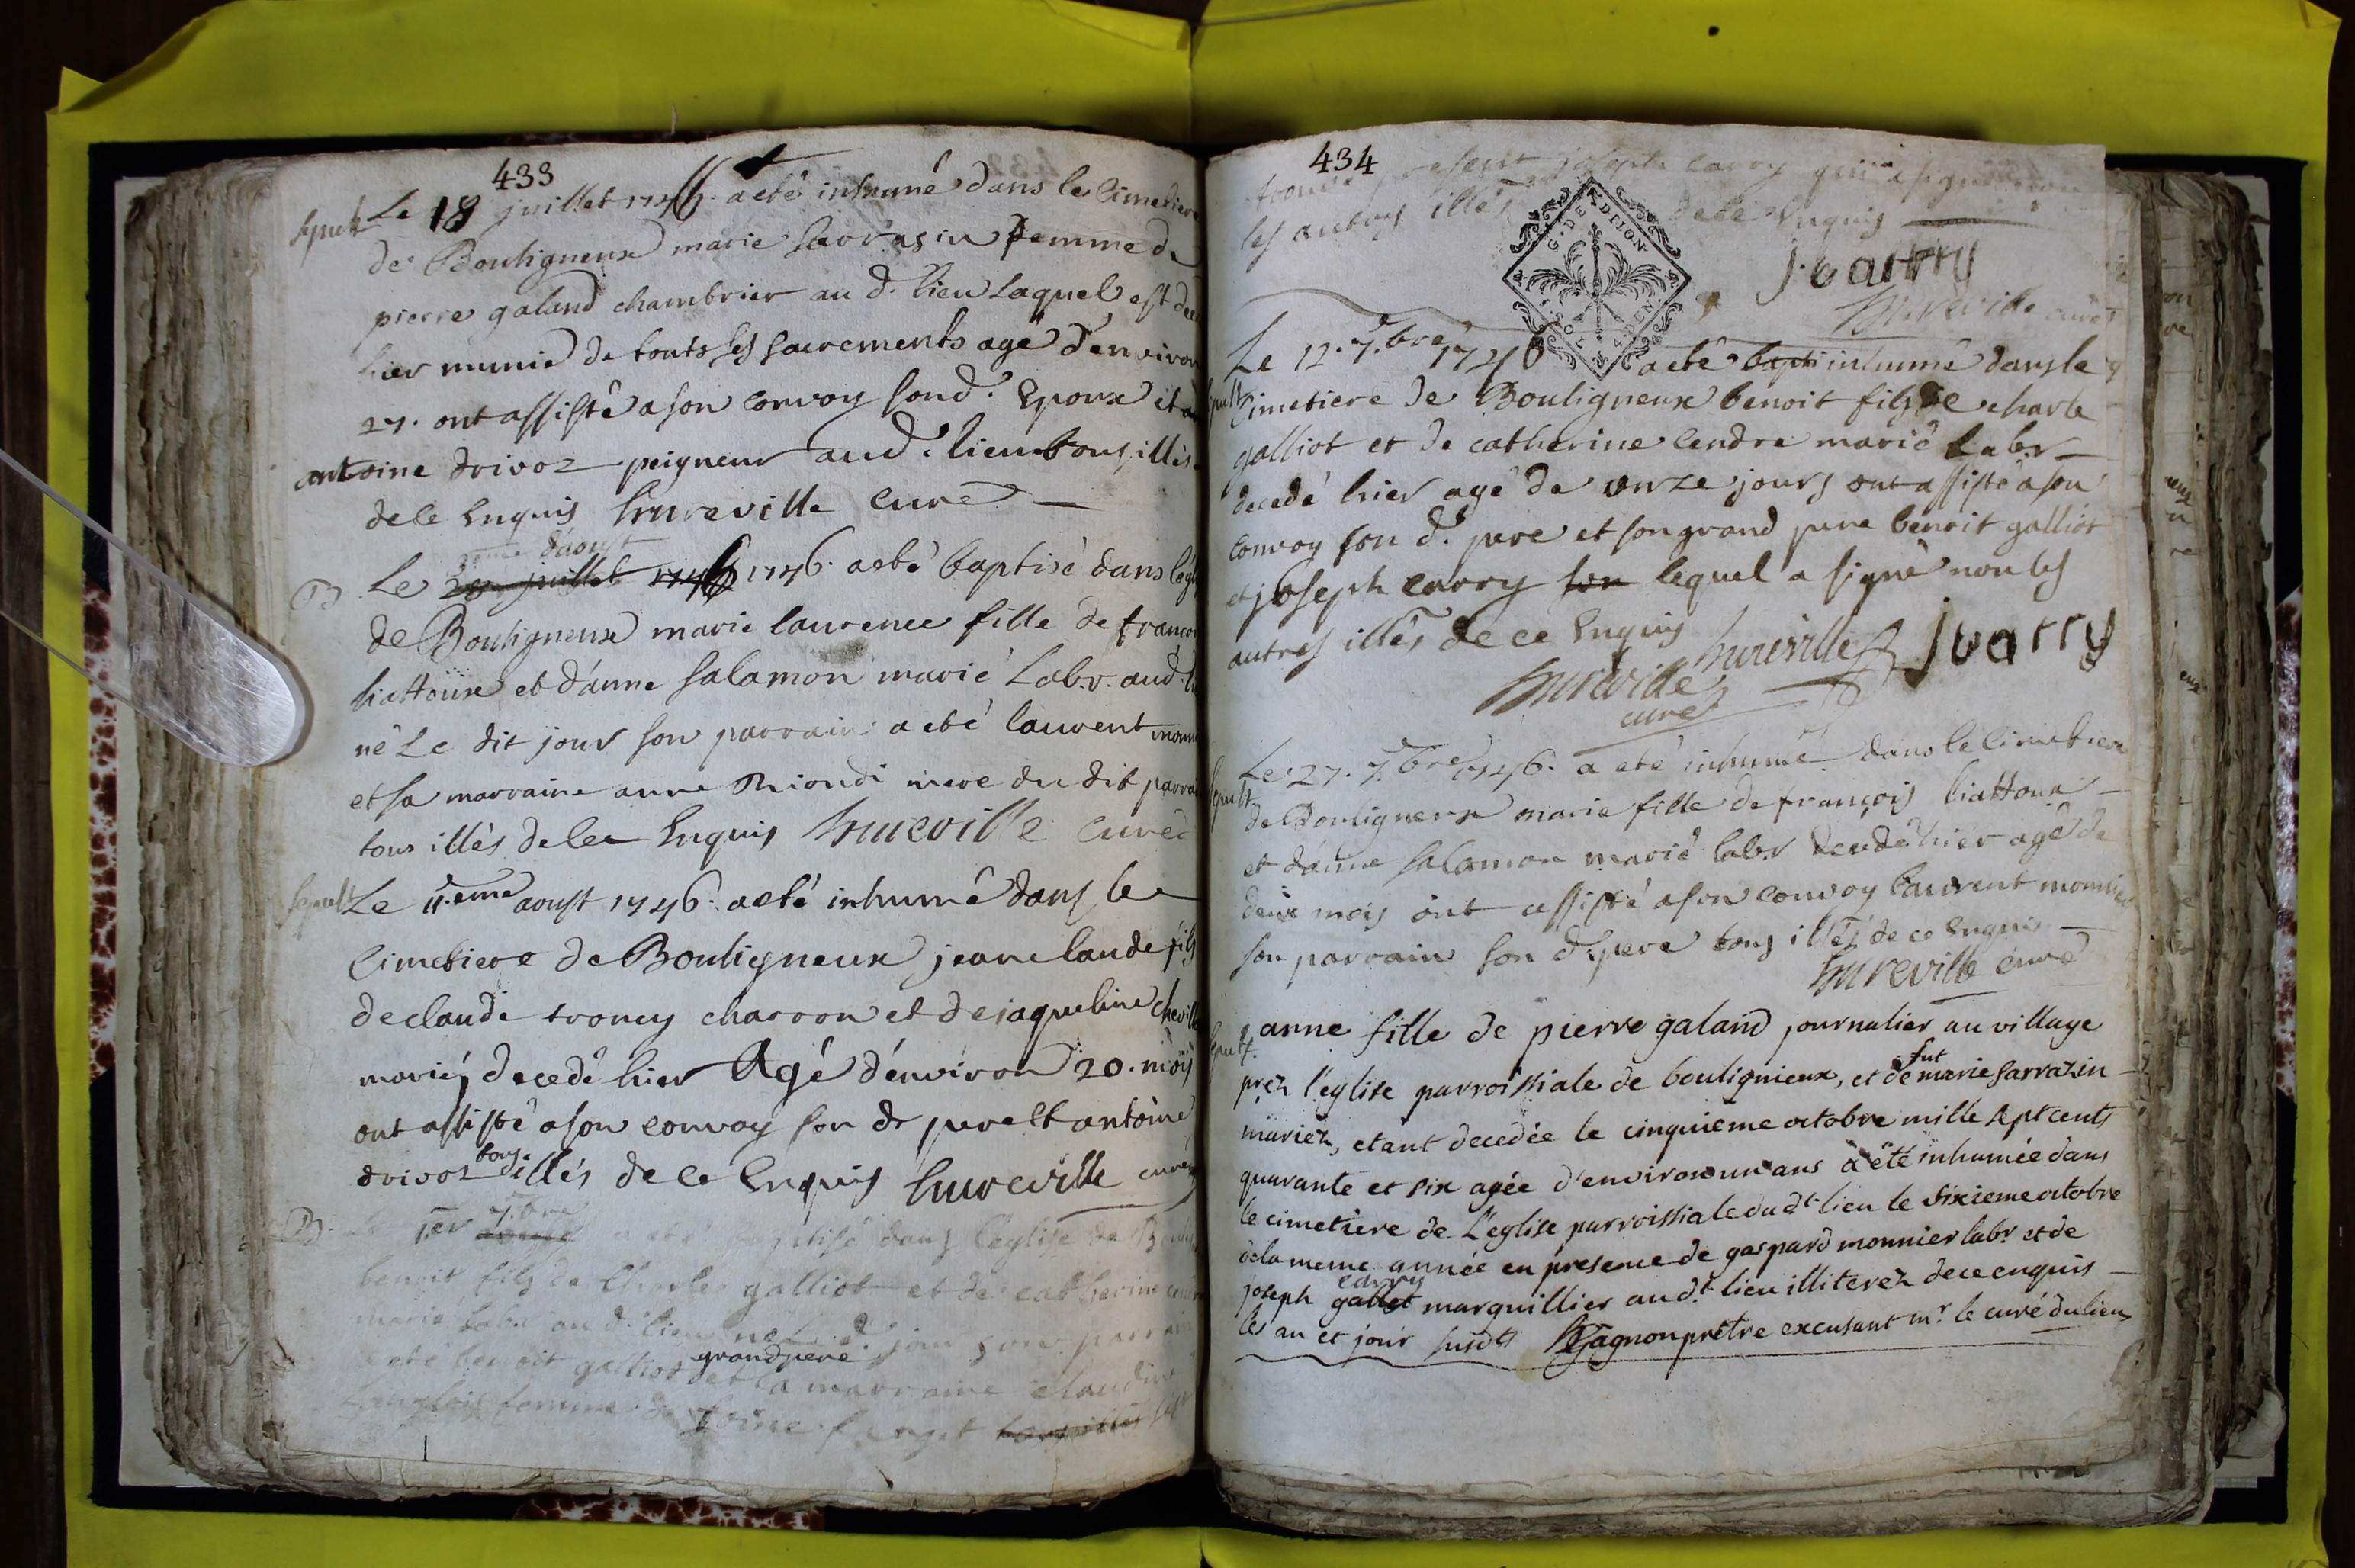 433
sepult Le 18 juillet 1746. a eté inhumé dans le cimetiere
de Bouligneux marie Sarrasin femme de
pierre galand chambrier au d. lieu laquel est
hier munie de touts les sacrements agé d'environ
27. ont assisté a son convoy son d. Epoux et
antoine drivoz peigneur aud. lieu tous illés
de ce Enquis hureville Curé
3eme d'aoust
B Le 28 juillet 1746 1746. a eté baptisé dans
de Bouligneux marie laurence fille de
liattoux et d'anne salamon marié Labr. aud
né Le dit jour son parrain a eté laurent
et sa marraine anne Riondi mere du dit
tous illés de ce Enquis hureville Curé
sepult Le 11.eme aoust 1746. a eté inhumé dans le
Cimetiere de Bouligneux jean claude fils
de claude troncy charron et de jaqueline
mariés decedé hier Agé d'environ 20. mois
ont assisté a son convoy son dt pere et antoine
drivoz tous illés de ce Enquis hureville curé
7.bre
B. Le 1er a eté baptisé dans l'eglise de
benoit fils de Charles galliot et de catherine
marié Labr. au d. lieu né le d. jour son
a eté benoit galliot grand pere et sa marraine claudine
femme de
434
present joseph carry qui a signé non
les autres illés de ce Enquis
G. DE
DITION
SOL
4 DEN.
J. Carry
hureville curé
Le 12. 7.bre 1746 a eté bapti inhumé dans le
cimetiere de Bouligneux benoit fils de charle
galliot et de catherine Cendre marié Labr
decedé hier agé de onze jours ont assisté a son
convoy son d. pere et son grand pere benoit galliot
et joseph carry son lequel a signé non les
autres illés de ce Enquis
hureville J Carry
hureville
curé
Le 27. 7.bre 1746. a eté inhumé dans le cimetiere
sepult de Bouligneux marie fille de françois liattoux
et d'anne salamon marié labr decedé hier agé de
deux mois ont assisté a son convoy laurent monnier
son parrain son d. pere tous illés de ce Enquis
hureville curé
anne fille de pierre galand journalier au village
sepult. prez l'eglise parroissiale de bouligneux, et de fut marie sarrazin
mariez, etant decedée le cinquieme octobre mille sept cents
quarante et six agée d'environ un ans a été inhumée dans
le cimetiere de L'eglise parroissiale du dt lieu le sixieme octobre
de la meme année en presence de gaspard monnier labr et de
joseph gallet carry marguillier au dt. lieu illiterez de ce enquis
les an et jour susdts Gagnon prêtre excusant mr. le curé du lieu